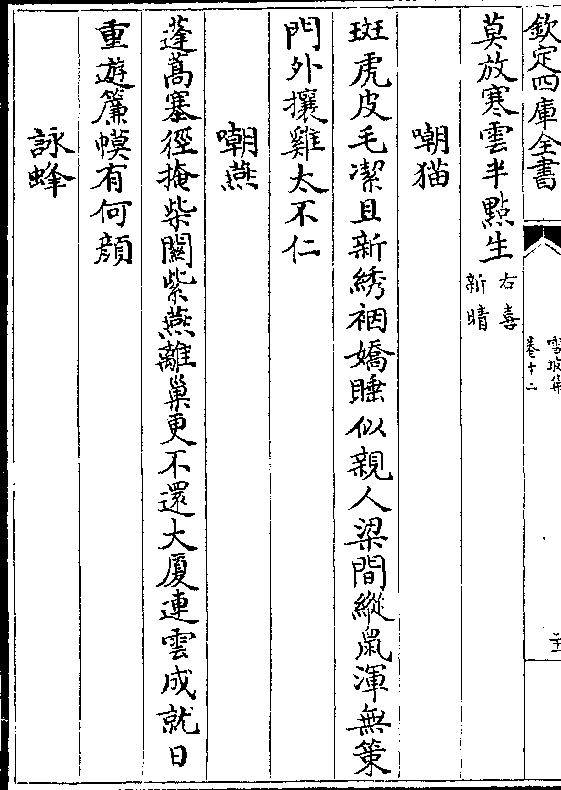 欽定四庫全書
雪坡集
卷十二
莫放寒雲半點生右喜
新晴
嘲猫
斑虎皮毛潔且新綉裀嬌睡似親人梁間縱鼠渾無策
門外攘雞太不仁
嘲燕
蓬蒿塞徑掩柴關紫燕離巢更不還大厦連雲成就日
重遊簾幙有何顔
詠蜂